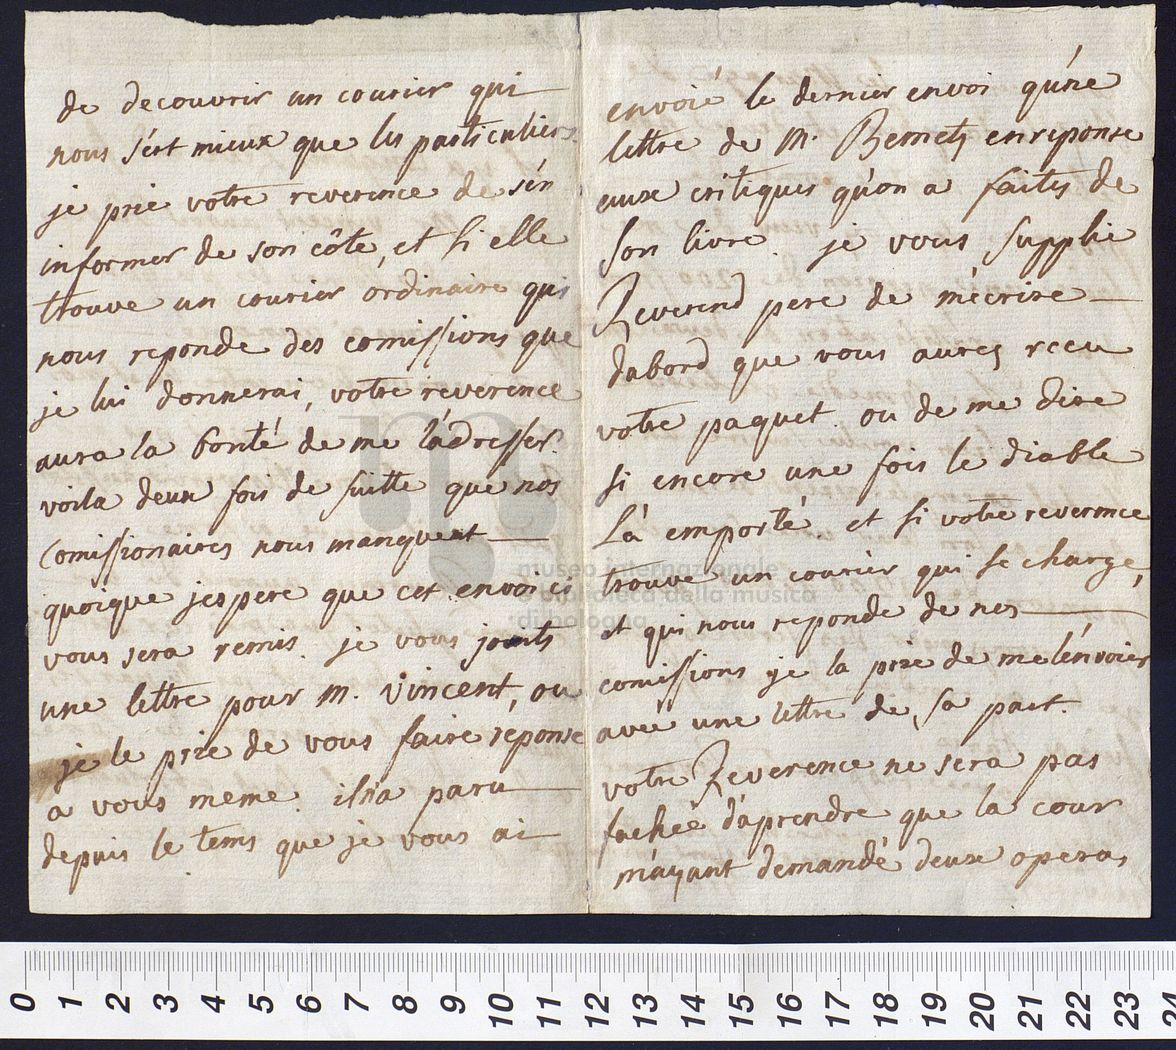 de decouvrir un courier qui
nous sért mieux que les particuliers.
je prie votre reverence de s'én
informer de son côte, et si elle
trouve un courier ordinaire qui
nous reponde des comissions que
je lui donnerai, votre reverence
aura la bonté de me l'ádresser.
voila deux fois de suitte que nos
comissionaires nous manquent
quoique jespere que cet envoi ci
vous sera remis. je vous joints
une lettre pour M. vincent, ou
je le prie de vous faire reponse
a vous meme. il n'a paru
depuis le tems que je vous ai
envoié le dernier envoi qu'une
lettre de M. Bemetz en reponse
aux critiques qu'on a faites de
son livre. je vous supplie
Reverend pere de m'écrire
dabord que vous aurez receu
votre paquet. ou de me dire
si encore une fois le diable
l'à emporté. et si votre reverence
trouve un courier qui se charge,
et qui nous reponde de nos
comissions je la prie de me l'énvoier
avec une lettre de sa part.
votre Reverence ne sera pas
fachée d'áprendre que la cour
m'ayant demandé deux operas,
museo internazionale
e biblioteca della musica
di bologna
0 1 2 3 4 5 6 7 8 9 10 11 12 13 14 15 16 17 18 19 20 21 22 23 24